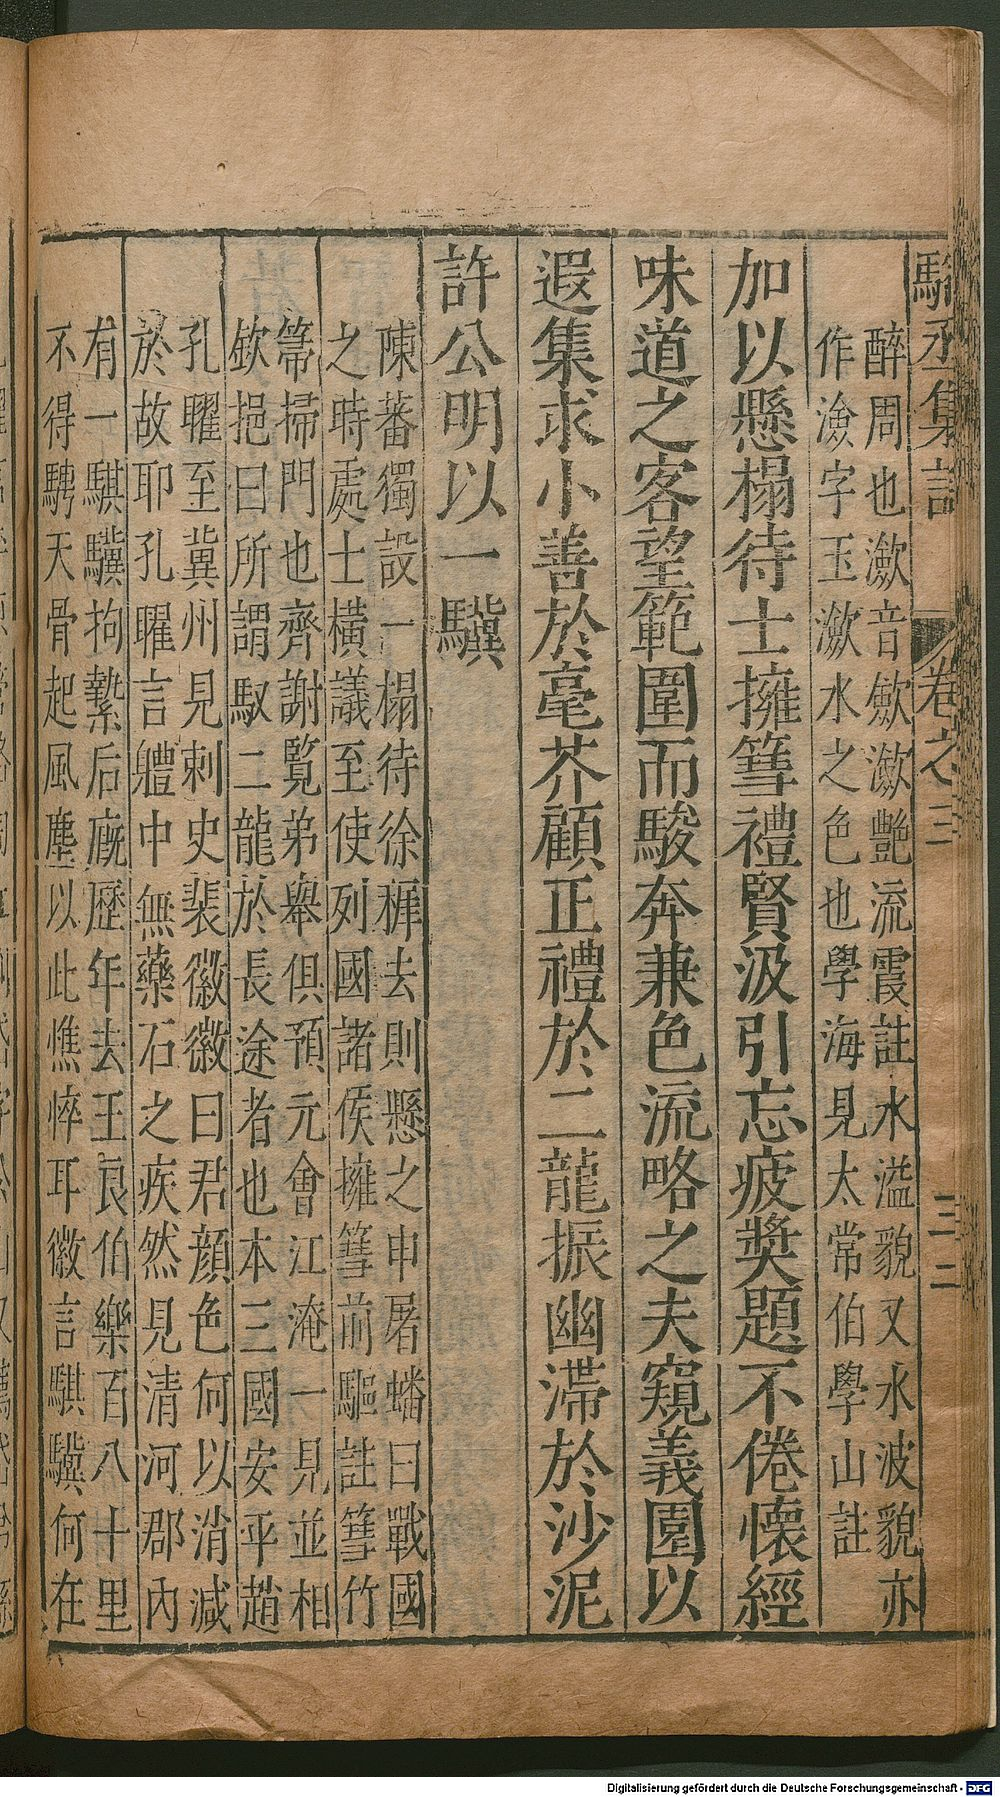 駱丞集註 卷之三 三二
醉周也瀲音歛瀲艷流霞註水溢貌又水波貌亦
作澰字玉瀲水之色也學海見太常伯學山註
加以懸榻待士擁篲禮賢汲引忘疲奬題不倦懷經
味道之客望範圍而駿奔兼色流略之夫窺義園以
遐集求小善於毫芥顧正禮於二龍振幽滯於沙泥
許公明以一驥
陳蕃獨設一榻待徐穉去則懸之申屠蟠曰戰國
之時處士橫議至使列國諸侯擁篲前驅註篲竹
箒掃門也齊謝覽弟舉俱預元會江淹一見並相
欽挹曰所謂馭二龍於長途者也本三國安平趙
孔曜至冀州見刺史裴徽徽曰君顔色何以消減
於故耶孔曜言軆中無藥石之疾然見清河郡內
有一騏驥拘縶后廐歷年去王良伯樂百八十里
不得騁天骨起風塵以此憔悴耳徽言騏驥何在
Digitalisierung gefördert durch die Deutsche Forschungsgemeinschaft - DFG